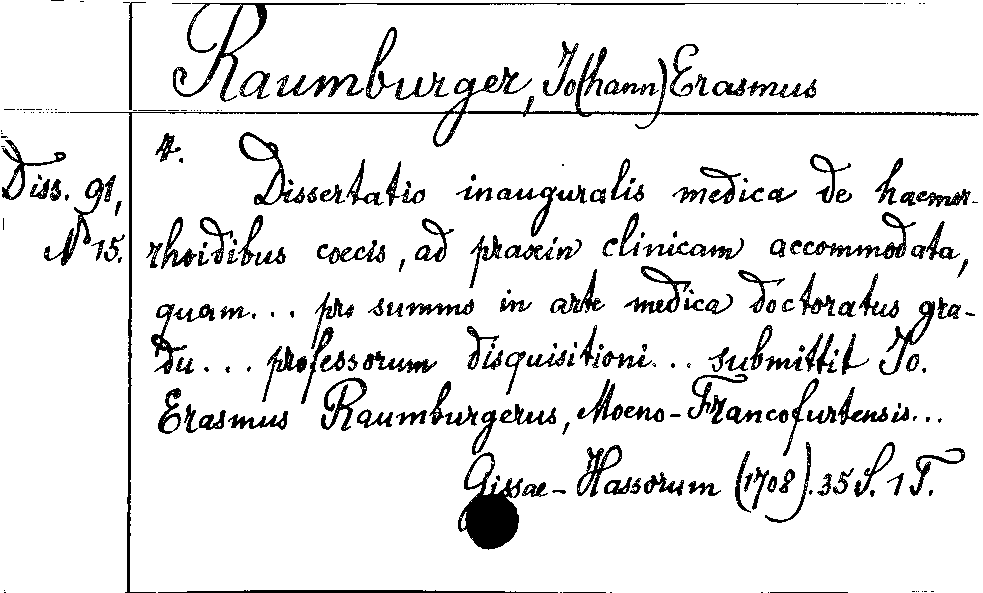 Raumburger, Jo(hann) Erasmus
4.
Diss. 91,
N° 15.
Dissertatio inauguralis medica de haemor-
rhoidibus coecis, ad praxin clinicam accommodata,
quam... pro summo in arte medica doctoratus gra-
du... professorum disquisitioni... submittit Jo.
Erasmus Raumburgerus, Moeno-Francofurtensis...
Gissae-Hassorum (1708). 35 S. 1 T.